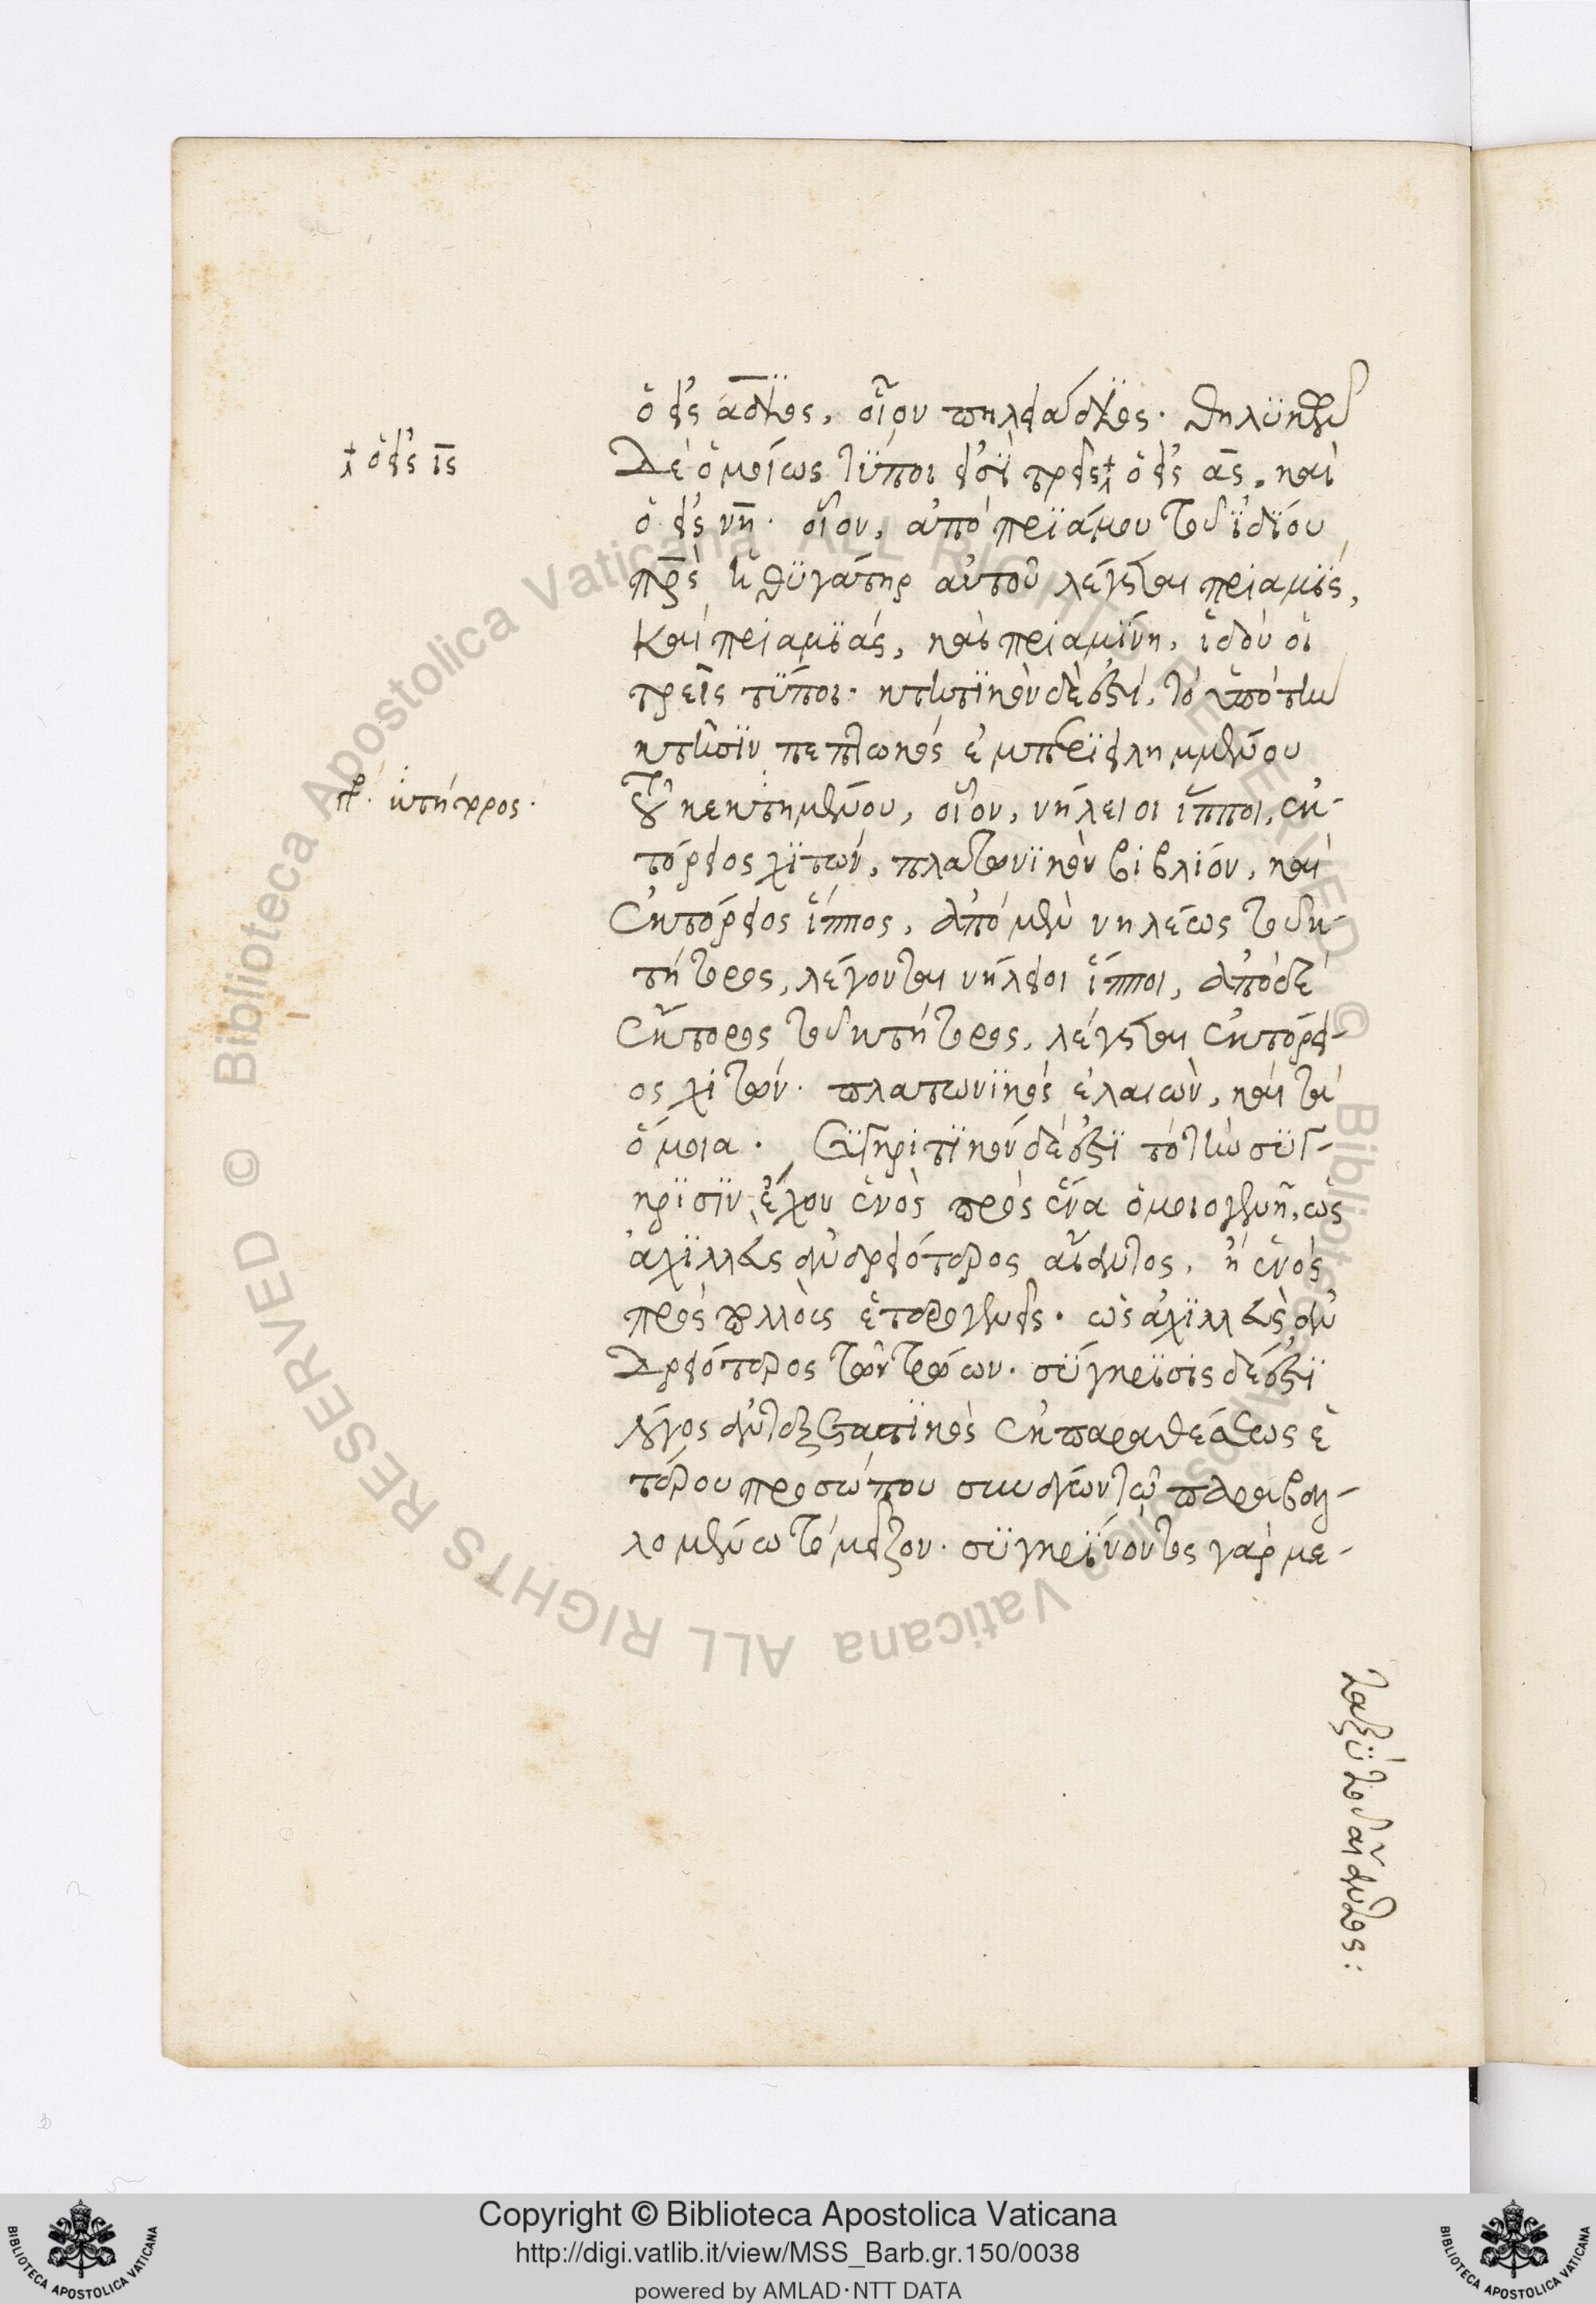 ὁ εἰς άδϊος, οἷον πηλειάδϊος. θηλϋκῶν
δὲ ὁμοίως τϋποι εἰσῒ τρεῖς ὁ εἰς ᾱς, καὶ
ὁ εἰς ν̄η̄. οἷον, ἀπὸ πρϊάμου τοῦ ἰδϊου
π̄ρ̄ς̄ ἡ θϋγάτηρ αὐτοῦ λέγεται πριαμϊς,
καὶ πριαμϊὰς, καὶ πριαμίνη, ἰδοὺ οἱ
τρεῖς τϋποι. κτητϊκὸν δὲ ἐστὶ, τὸ ὑπὸ τὴν
κτῆσϊν πεπτωκὸς ἐμπεριειλημμένου
τοῦ κεκτημένου, οἷον, νήλειοι ἵπποι, ἑκ-
τόρεος χϊτών, πλατωνϊκὸν βιβλίον, καὶ
ἑκτόρεος ἵππος, ἀπὸ μὲν νηλέως τοῦ κ-
τήτορος, λέγονται νήλειοι ἵπποι, ἀπὸ δὲ
ἕκτορος τοῦ κτήτορος, λέγεται ἑκτόρε-
ος χιτών. πλατωνϊκὸς ἐλαιών, καὶ τὰ
ὅμοια. Συγκριτϊκὸν δέ ἐστϊ τὸ τὴν σϋγ-
κρϊσϊν ἔχον ἑνὸς πρὸς ἕνα ὁμοιογενῆ, ὡς
ἀχϊλλεὺς ἀνδρειότερος αἴαντος, ἢ ἑνὸς
πρὸς πολλοὺς ἑτερογενεῖς. ὡς ἀχϊλλεὺς ἀν
δρειότερος τῶν τρώων. σϋγκρϊσις δέ ἐστϊ
λόγος ἀντεξεταστϊκὸς ἐκ παραθέσεως ἑ
τέρου προσώπου συνάγων τῷ παραβαλ-
λομένῳ τὸ μεῖζον. σϋγκρϊνοντες γὰρ με-
ὁ εἰς ῑς
κτήτορος.
τάξϋ τοῦ αἴαντος:
Copyright © Biblioteca Apostolica Vaticana
http://digi.vatlib.it/view/MSS_Barb.gr.150/0038
powered by AMLAD·NTT DATA
BIBLIOTECA APOSTOLICA VATICANA
BIBLIOTECA APOSTOLICA VATICANA
© Biblioteca Apostolica Vaticana ALL RIGHTS RESERVED
© Biblioteca Apostolica Vaticana ALL RIGHTS RESERVED